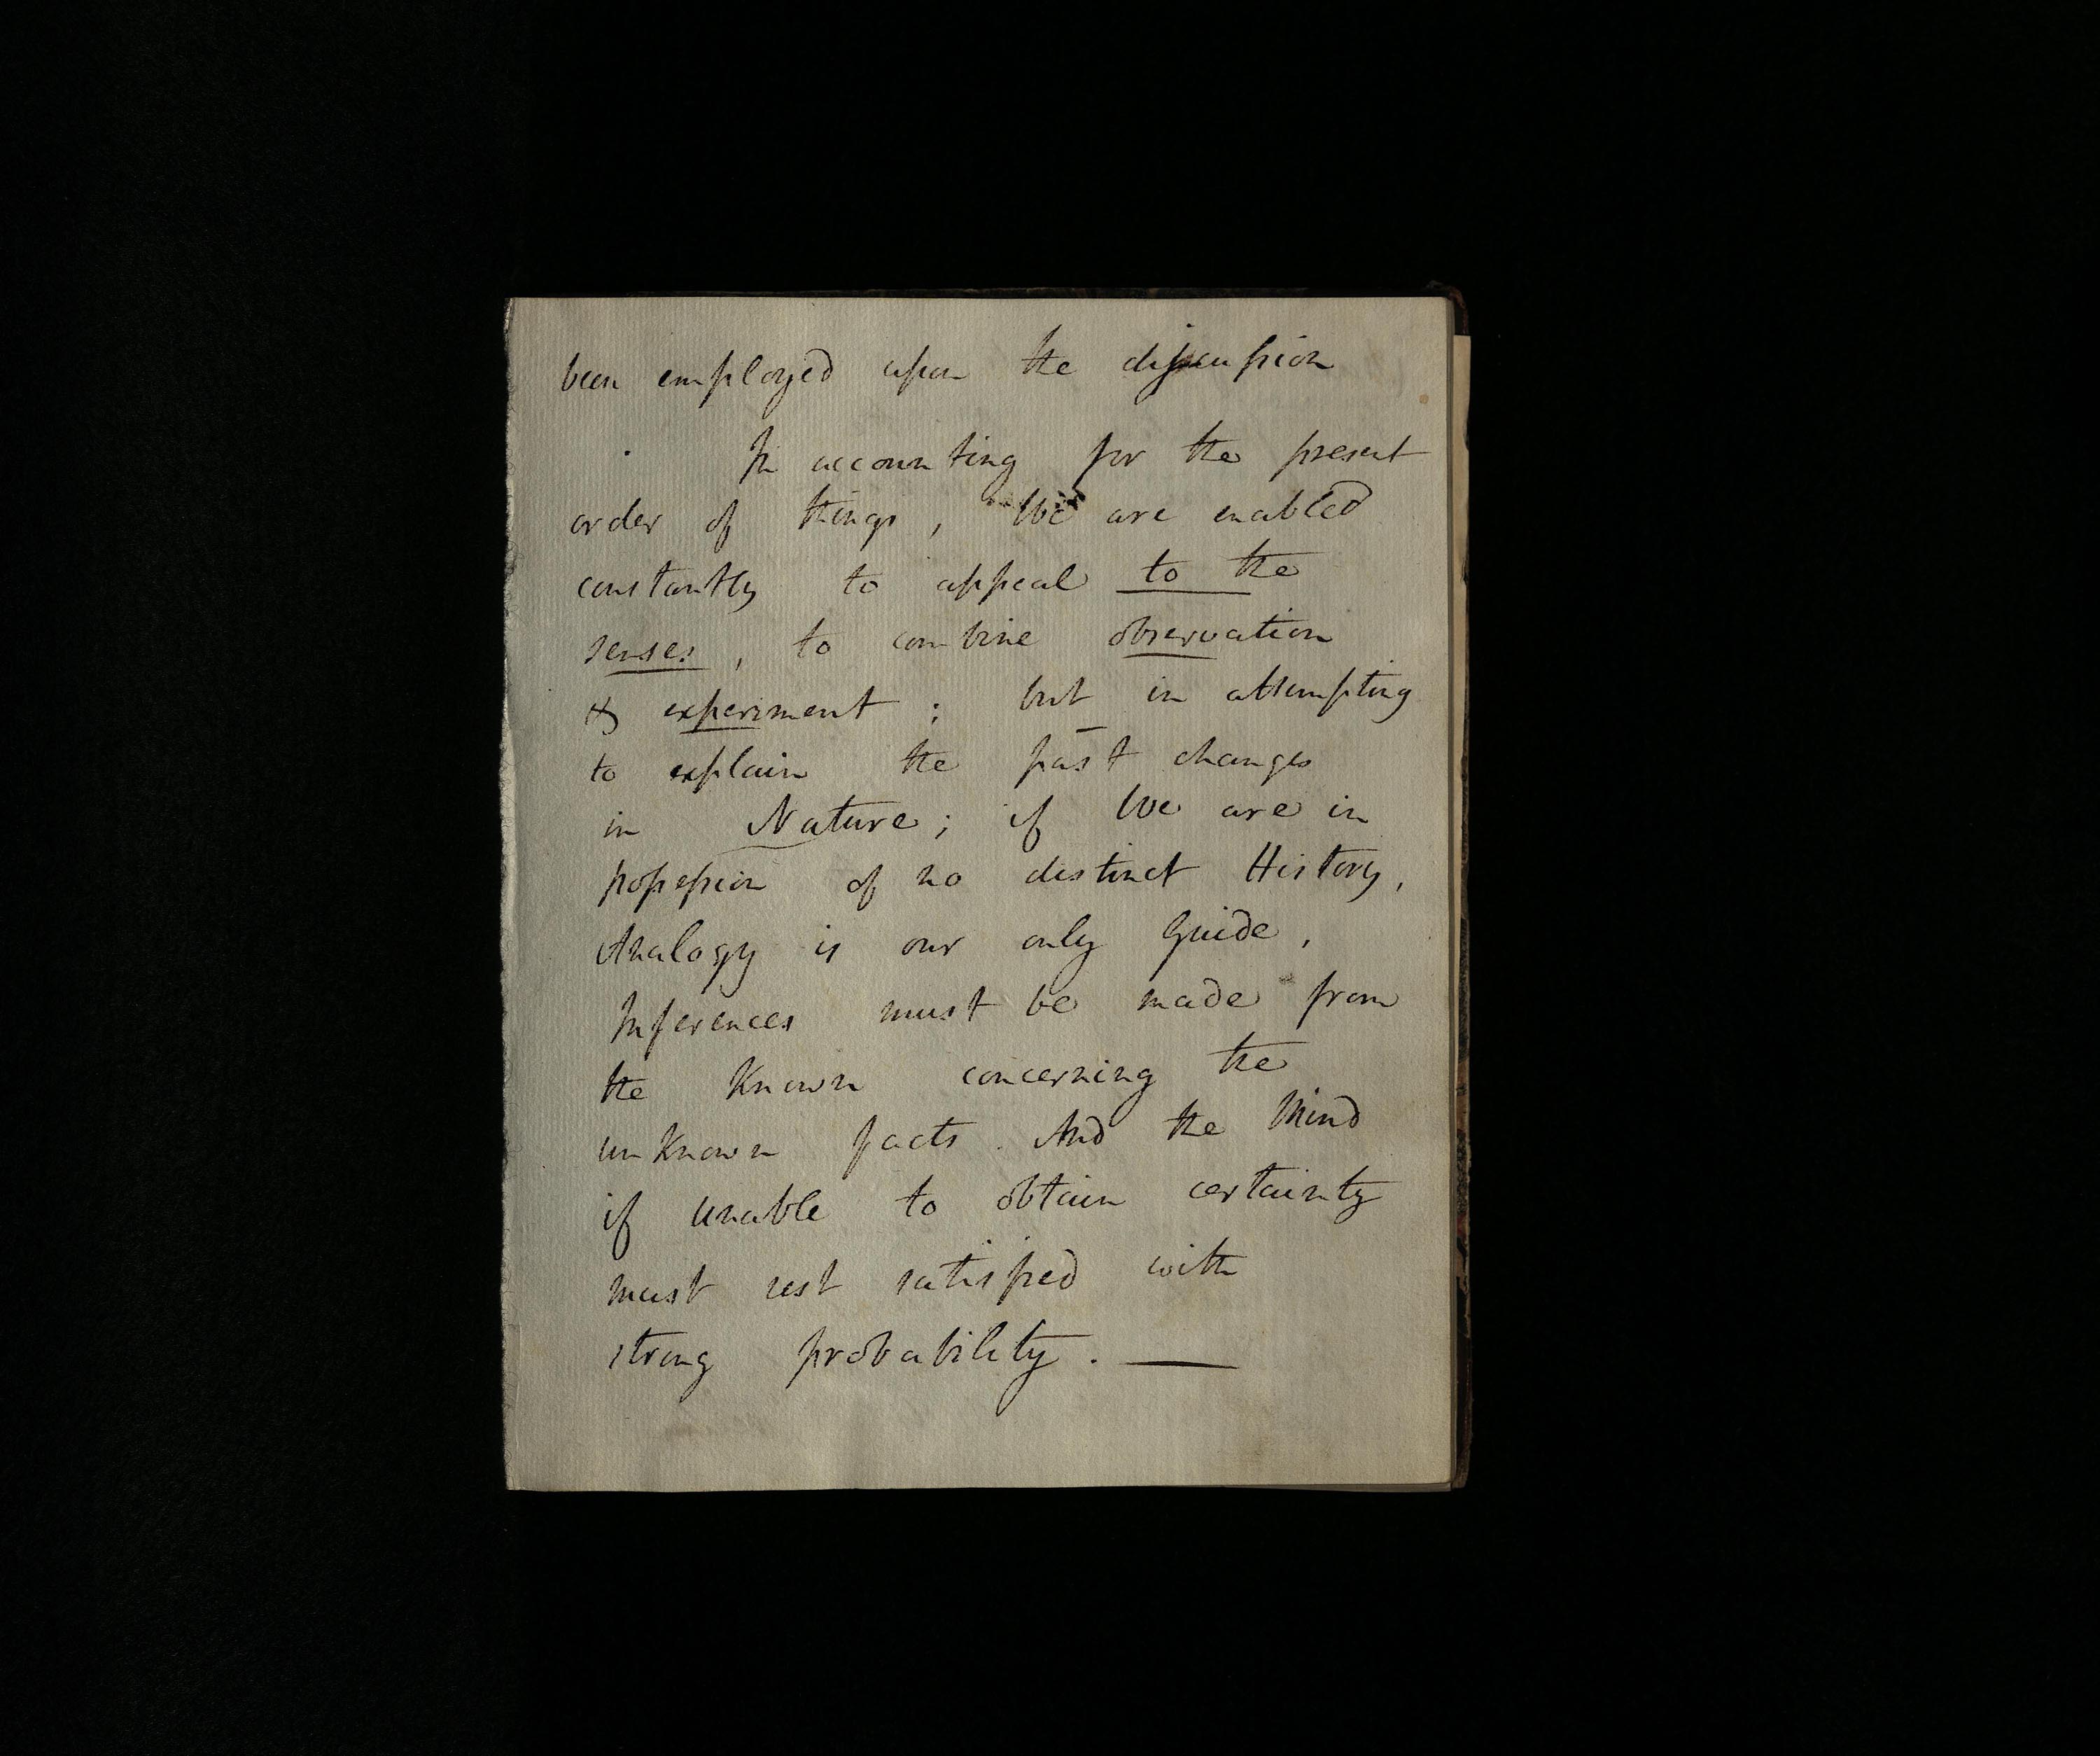 been employed upon the discussion
In accounting for the present
order of things, We are enabled
constantly to appeal to the
senses, to combine observation
& experiment; but in attempting
to explain the past changes
in Nature; if We are in
possession of no distinct History,
Analogy is our only Guide,
Inferences must be made from
the Known concerning the
unKnown facts. And the Mind
if unable to obtain certainty
must rest satisfied with
strong probability. —